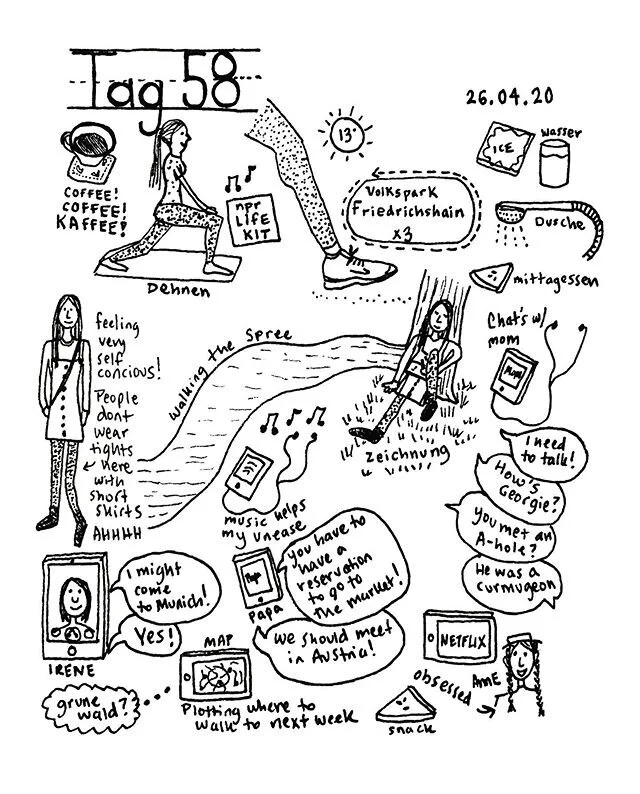 Tag 58
26.04.20
COFFEE!
COFFEE!
KAFFEE!
Dehnen
npr
LIFE
KIT
13°
Volkspark
Friedrichshain
x3
ICE
wasser
Dusche
mittagessen
feeling
very
self
concious!
People
dont
wear
tights
here
with
short
skirts
AHHHH
walking the Spree
zeichnung
Chat's w/
mom
Mom
I need
to talk!
How's
Georgie?
You met an
A-hole?
He was a
curmugeon
music helps
my unease
I might
come
to Munich!
Yes!
IRENE
Papa
PAPA
you have to
have a
reservation
to go to
the market!
We should meet
in Austria!
MAP
grune
wald?
Plotting where to
walk to next week
snack
NETFLIX
obsessed
ANNE